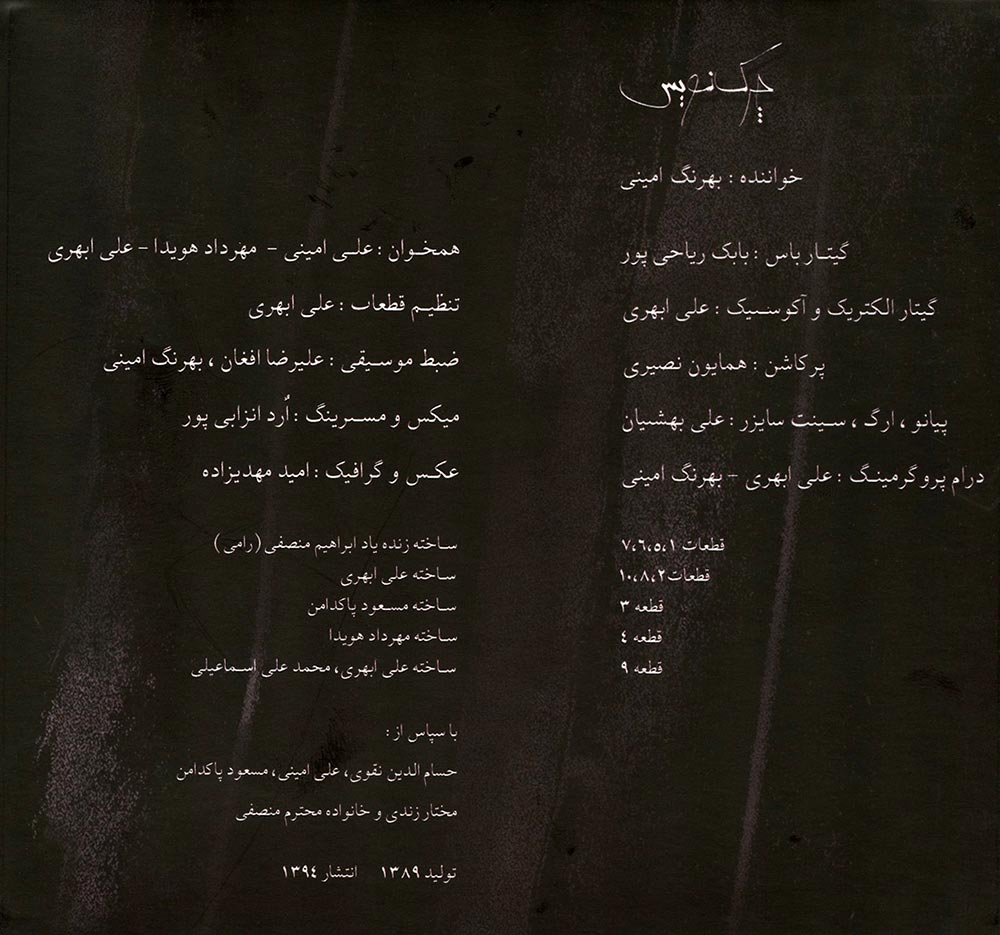 چرکنویس
خواننده : بهرنگ امینی
گیتار باس : بابک ریاحی پور
گیتار الکتریک و آکوسیک : علی ابهری
پرکاشن : همایون نصیری
پیانو ، ارگ ، سینت سایزر : علی بهشیان
درام پروگرمینگ : علی ابهری - بهرنگ امینی
همخوان : علی امینی - مهرداد هویدا - علی ابهری
تنظیم قطعات : علی ابهری
ضبط موسیقی : علیرضا افغان ، بهرنگ امینی
میکس و مسرینگ : اُرد انزابی پور
عکس و گرافیک : امید مهدیزاده
قطعات ۱،۵،۶،۷ ساخته زنده یاد ابراهیم منصفی (رامی)
قطعات ۲،۸،۱۰ ساخته علی ابهری
قطعه ۳ ساخته مسعود پاکدامن
قطعه ۴ ساخته مهرداد هویدا
قطعه ۹ ساخته علی ابهری، محمد علی اسماعیلی
با سپاس از :
حسام الدین نقوی، علی امینی، مسعود پاکدامن
مختار زندی و خانواده محترم منصفی
تولید ۱۳۸۹ انتشار ۱۳۹۴